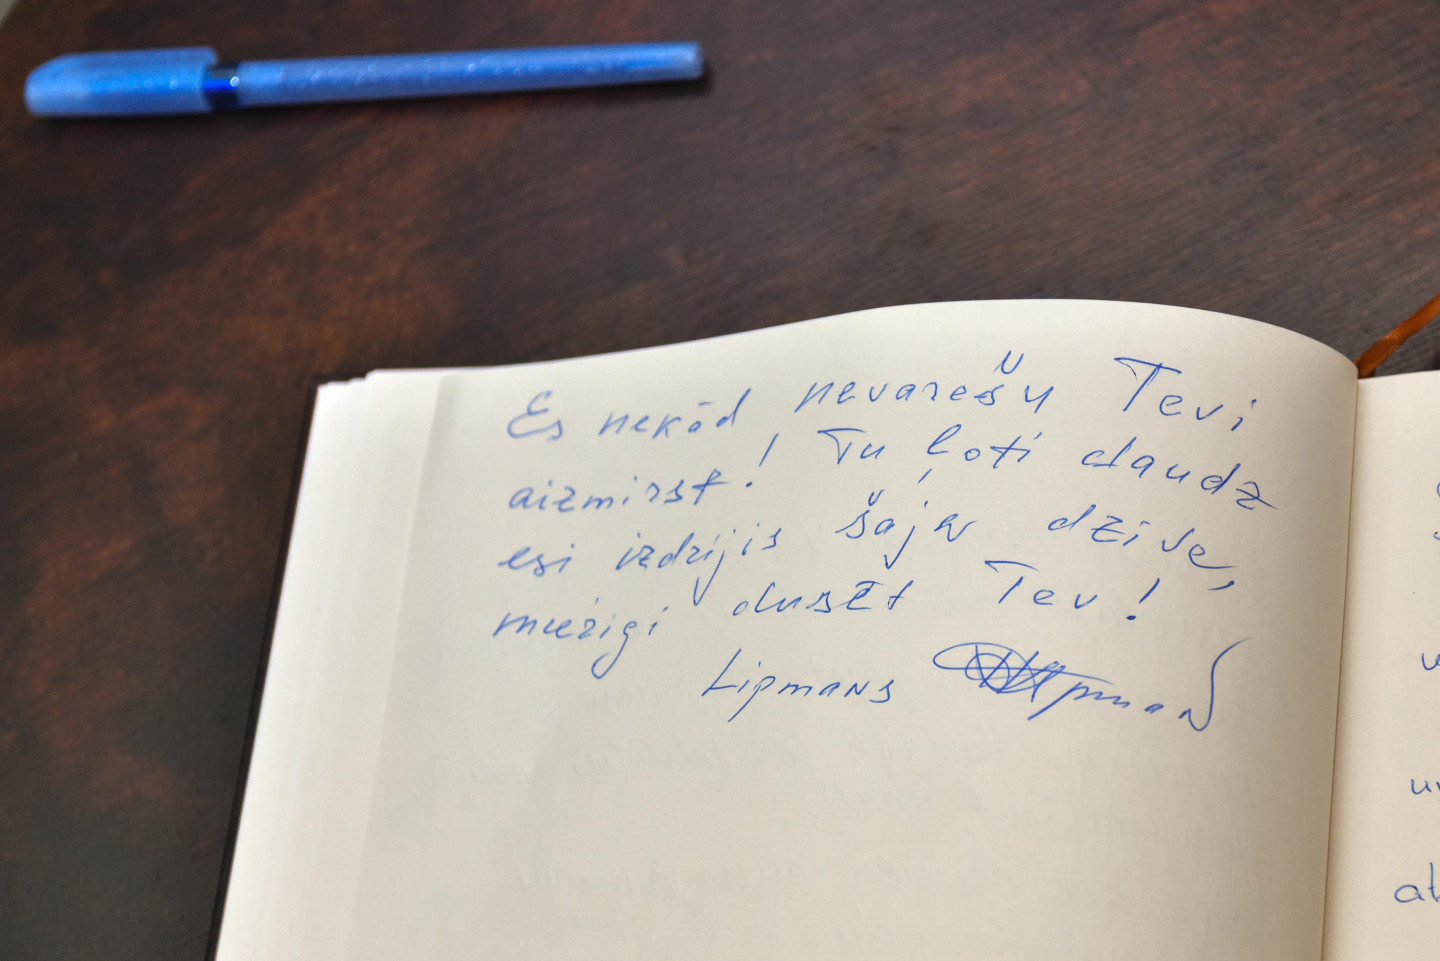 Es nekād nevarešu Tevi
aizmirst! Tu ļoti daudz
esi izdzijis šajā dzive,
mūzigi dusēt Tev!
Lipmans